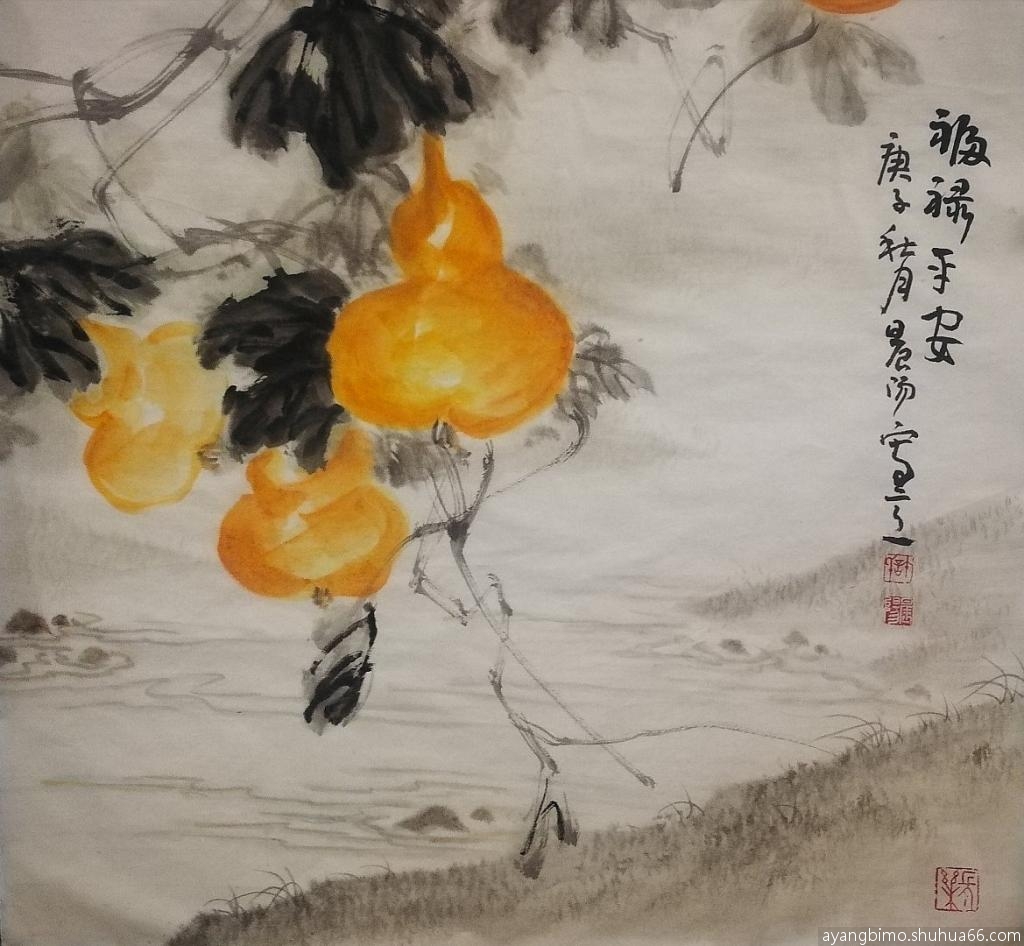 福禄平安
庚子秋月晨阳写之
ayangbimo.shuhua66.com